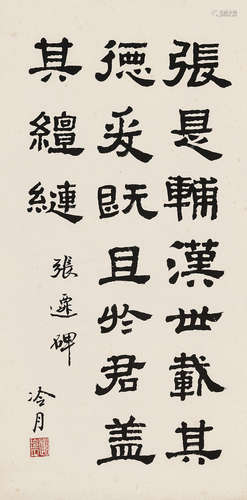 張是輔漢世載其
德爰既且於君盖
其繵縺
張遷碑
冷月